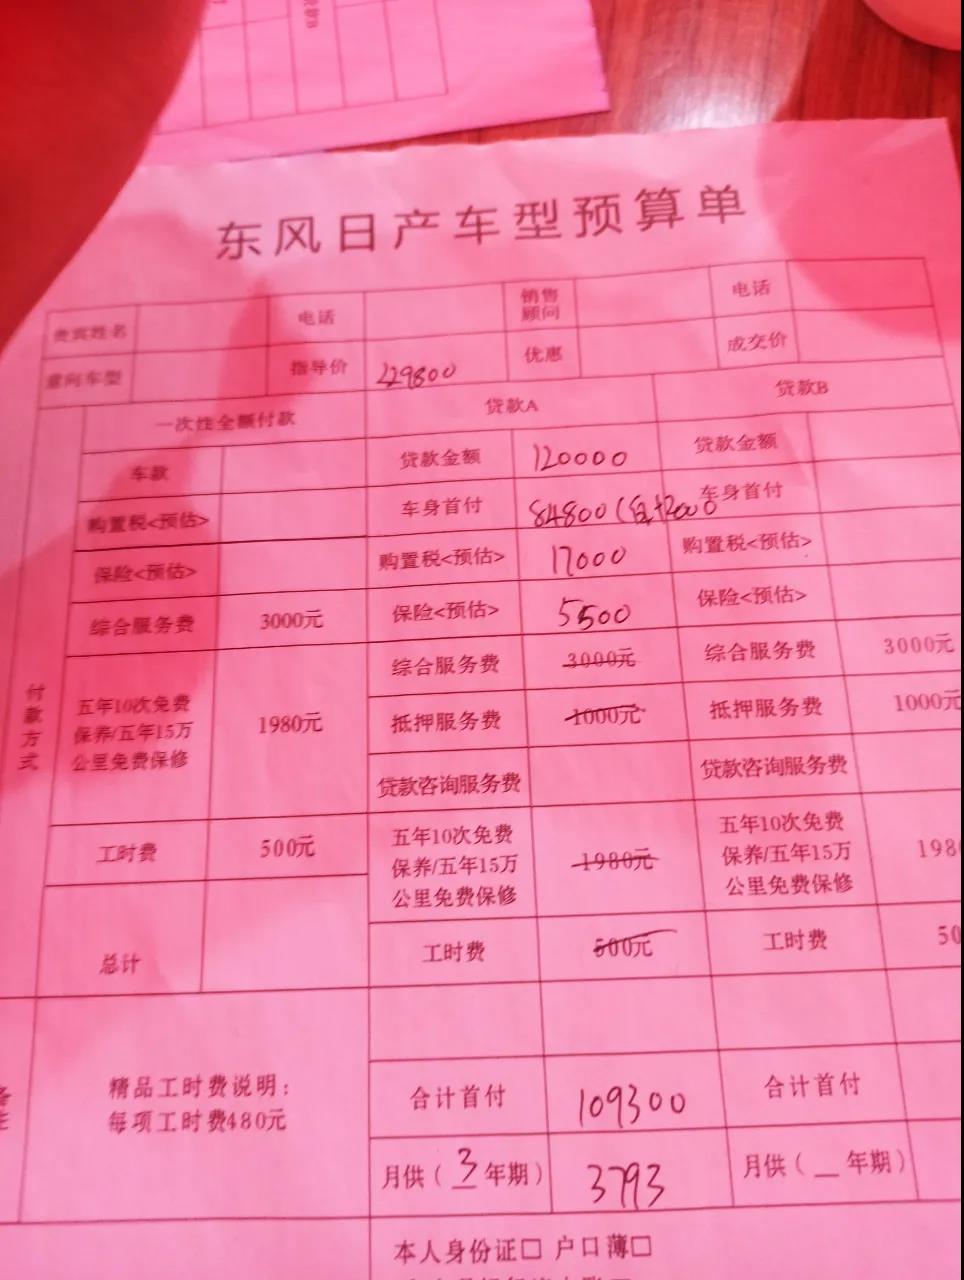 东风日产车型预算单
贵宾姓名 电话 销售顾问 电话
意向车型 指导价 229800 优惠 成交价
付款方式
一次性全额付款 贷款A 贷款B
车款 贷款金额 120000 贷款金额
购置税<预估> 车身首付 84800 车身首付
保险<预估> 购置税<预估> 17000 购置税<预估>
综合服务费 3000元 保险<预估> 5500 保险<预估>
五年10次免费保养/五年15万公里免费保修 1980元 综合服务费 3000元 综合服务费 3000元
抵押服务费 1000元 抵押服务费 1000元
贷款咨询服务费 贷款咨询服务费
工时费 500元 五年10次免费保养/五年15万公里免费保修 1980元 五年10次免费保养/五年15万公里免费保修 198
总计 工时费 500元 工时费 50
精品工时费说明:
每项工时费480元
合计首付 109300 合计首付
月供(3年期) 3793 月供(_年期)
本人身份证□ 户口薄□